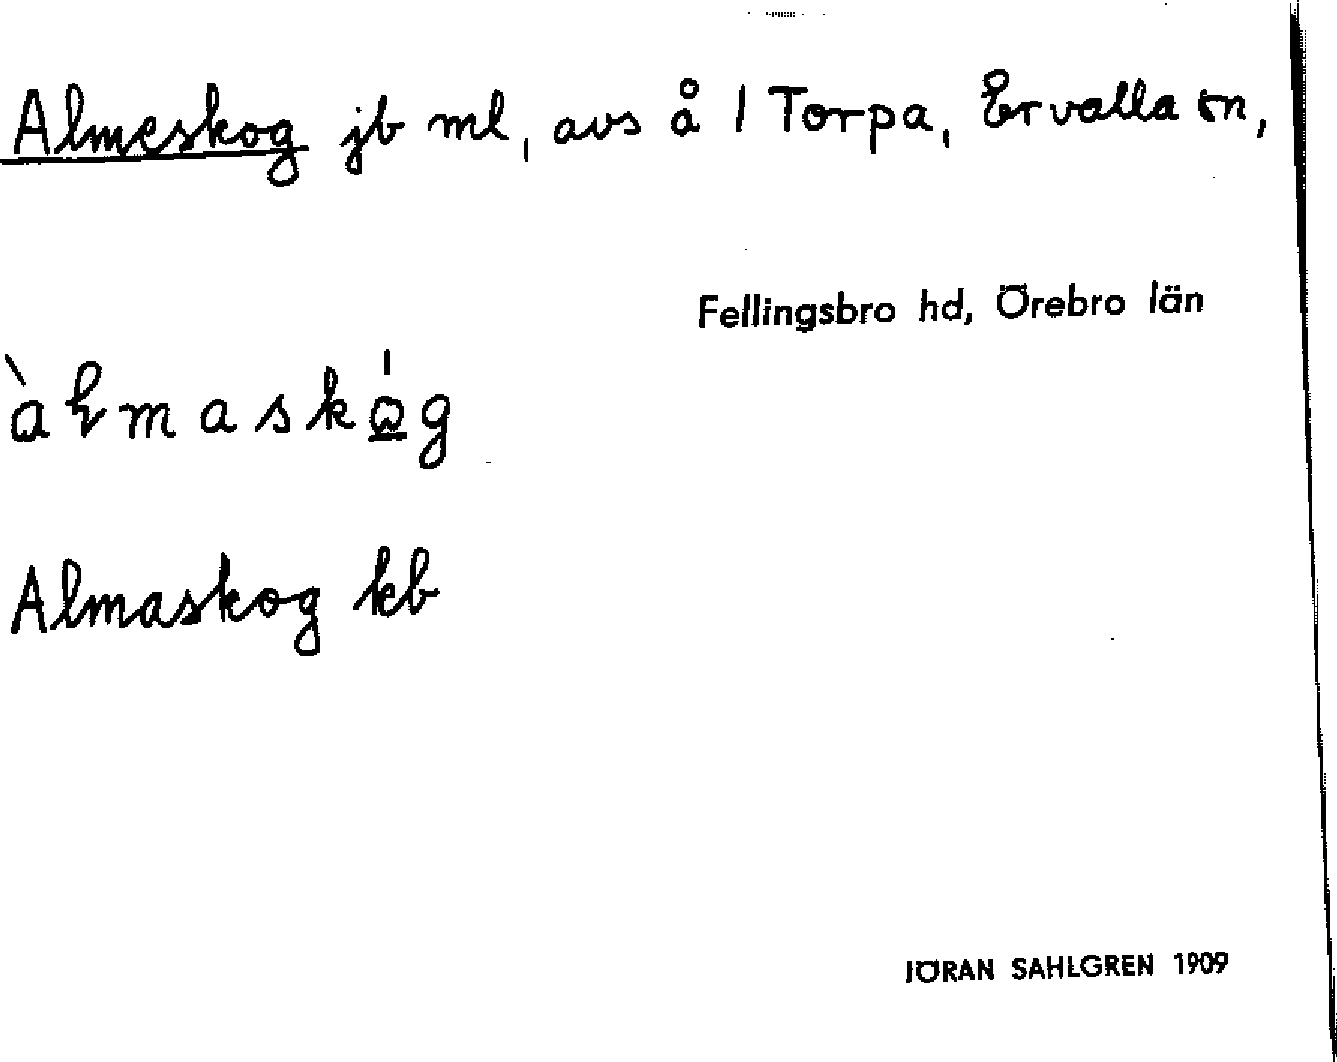 Almeskog jb ml, avs å 1 Torpa, Ervalla sn,
Fellingsbro hd, Örebro län
àɫmaskóg
Almaskog kb
JÖRAN SAHLGREN 1909